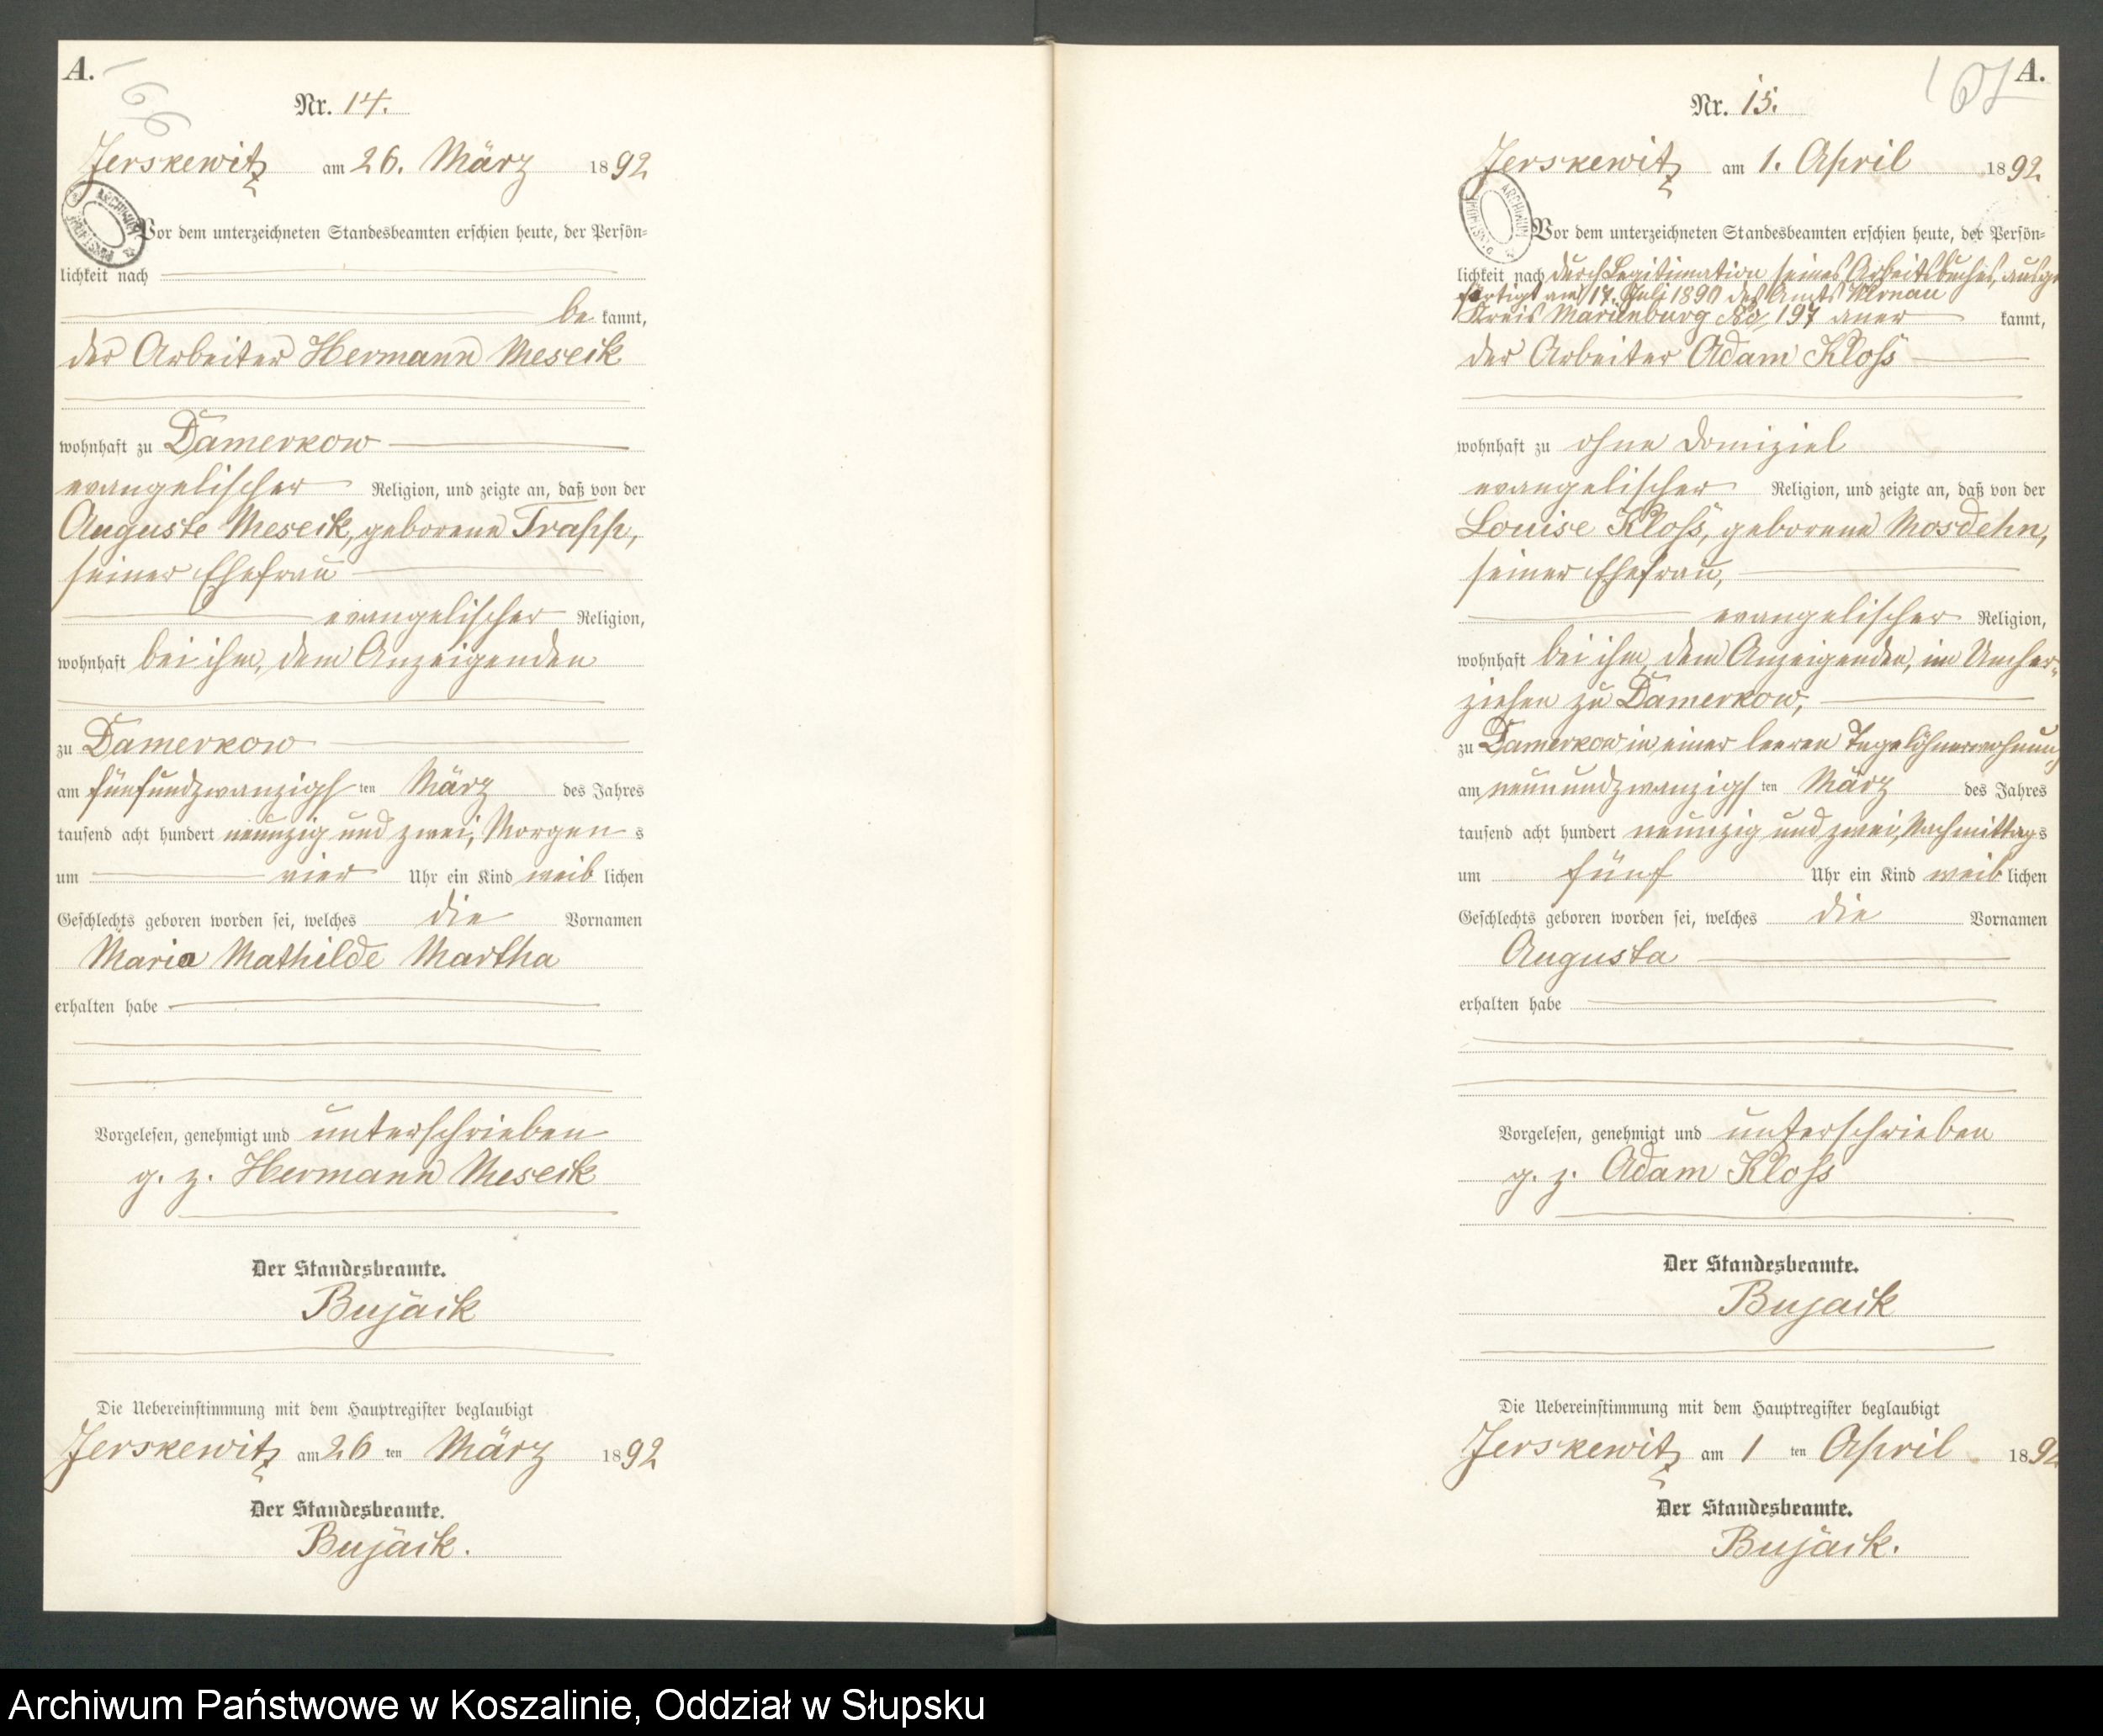 A.
166
Nr. 14.
Jerskewitz am 26. März 1892
ARCHIWUM
Vor dem unterzeichneten Standesbeamten erschien heute, der Persön=
lichkeit nach
be kannt,
der Arbeiter Hermann Meseck
wohnhaft zu Damerkow
evangelischer Religion, und zeigte an, daß von der
Auguste Meseck, geborene Trapp,
seiner Ehefrau
evangelischer Religion,
wohnhaft bei ihm, dem Anzeigenden
zu Damerkow
am fünfundzwanzigsten März des Jahres
tausend acht hundert neunzig und zwei, Morgens
um vier Uhr ein Kind weiblichen
Geschlechts geboren worden sei, welches die Vornamen
Maria Mathilde Martha
erhalten habe
Vorgelesen, genehmigt und unterschrieben
g. z. Hermann Meseck
Der Standesbeamte.
Bujack
Die Uebereinstimmung mit dem Hauptregister beglaubigt
Jerskewitz am 26 ten März 1892
Der Standesbeamte.
Bujack.
A.
Nr. 15.
Jerskewitz am 1. April 1892
ARCHIWUM
Vor dem unterzeichneten Standesbeamten erschien heute, der Persön=
lichkeit nach durch Legitimation seines Arbeitsbuches, ausge
fertigt am 17. Juli 1890 des Amts
Kreis Marienburg No 197 aner kannt,
der Arbeiter Adam Kloß
wohnhaft zu ohne Domiziel
evangelischer Religion, und zeigte an, daß von der
Louise Kloß, geborene Mosdehn,
seiner Ehefrau,
evangelischer Religion,
wohnhaft bei ihm, dem Anzeigenden, im Umher-
ziehen zu Damerkow,
zu Damerkow in einer leeren Tagelöhnerwohnung
am neunundzwanzigsten März des Jahres
tausend acht hundert neunzig und zwei, Nachmittags
um fünf Uhr ein Kind weiblichen
Geschlechts geboren worden sei, welches die Vornamen
Augusta
erhalten habe
Vorgelesen, genehmigt und unterschrieben
g. z. Adam Kloß
Der Standesbeamte.
Bujack
Die Uebereinstimmung mit dem Hauptregister beglaubigt
Jerskewitz am 1 ten April 1892
Der Standesbeamte.
Bujack.
Archiwum Państwowe w Koszalinie, Oddział w Słupsku